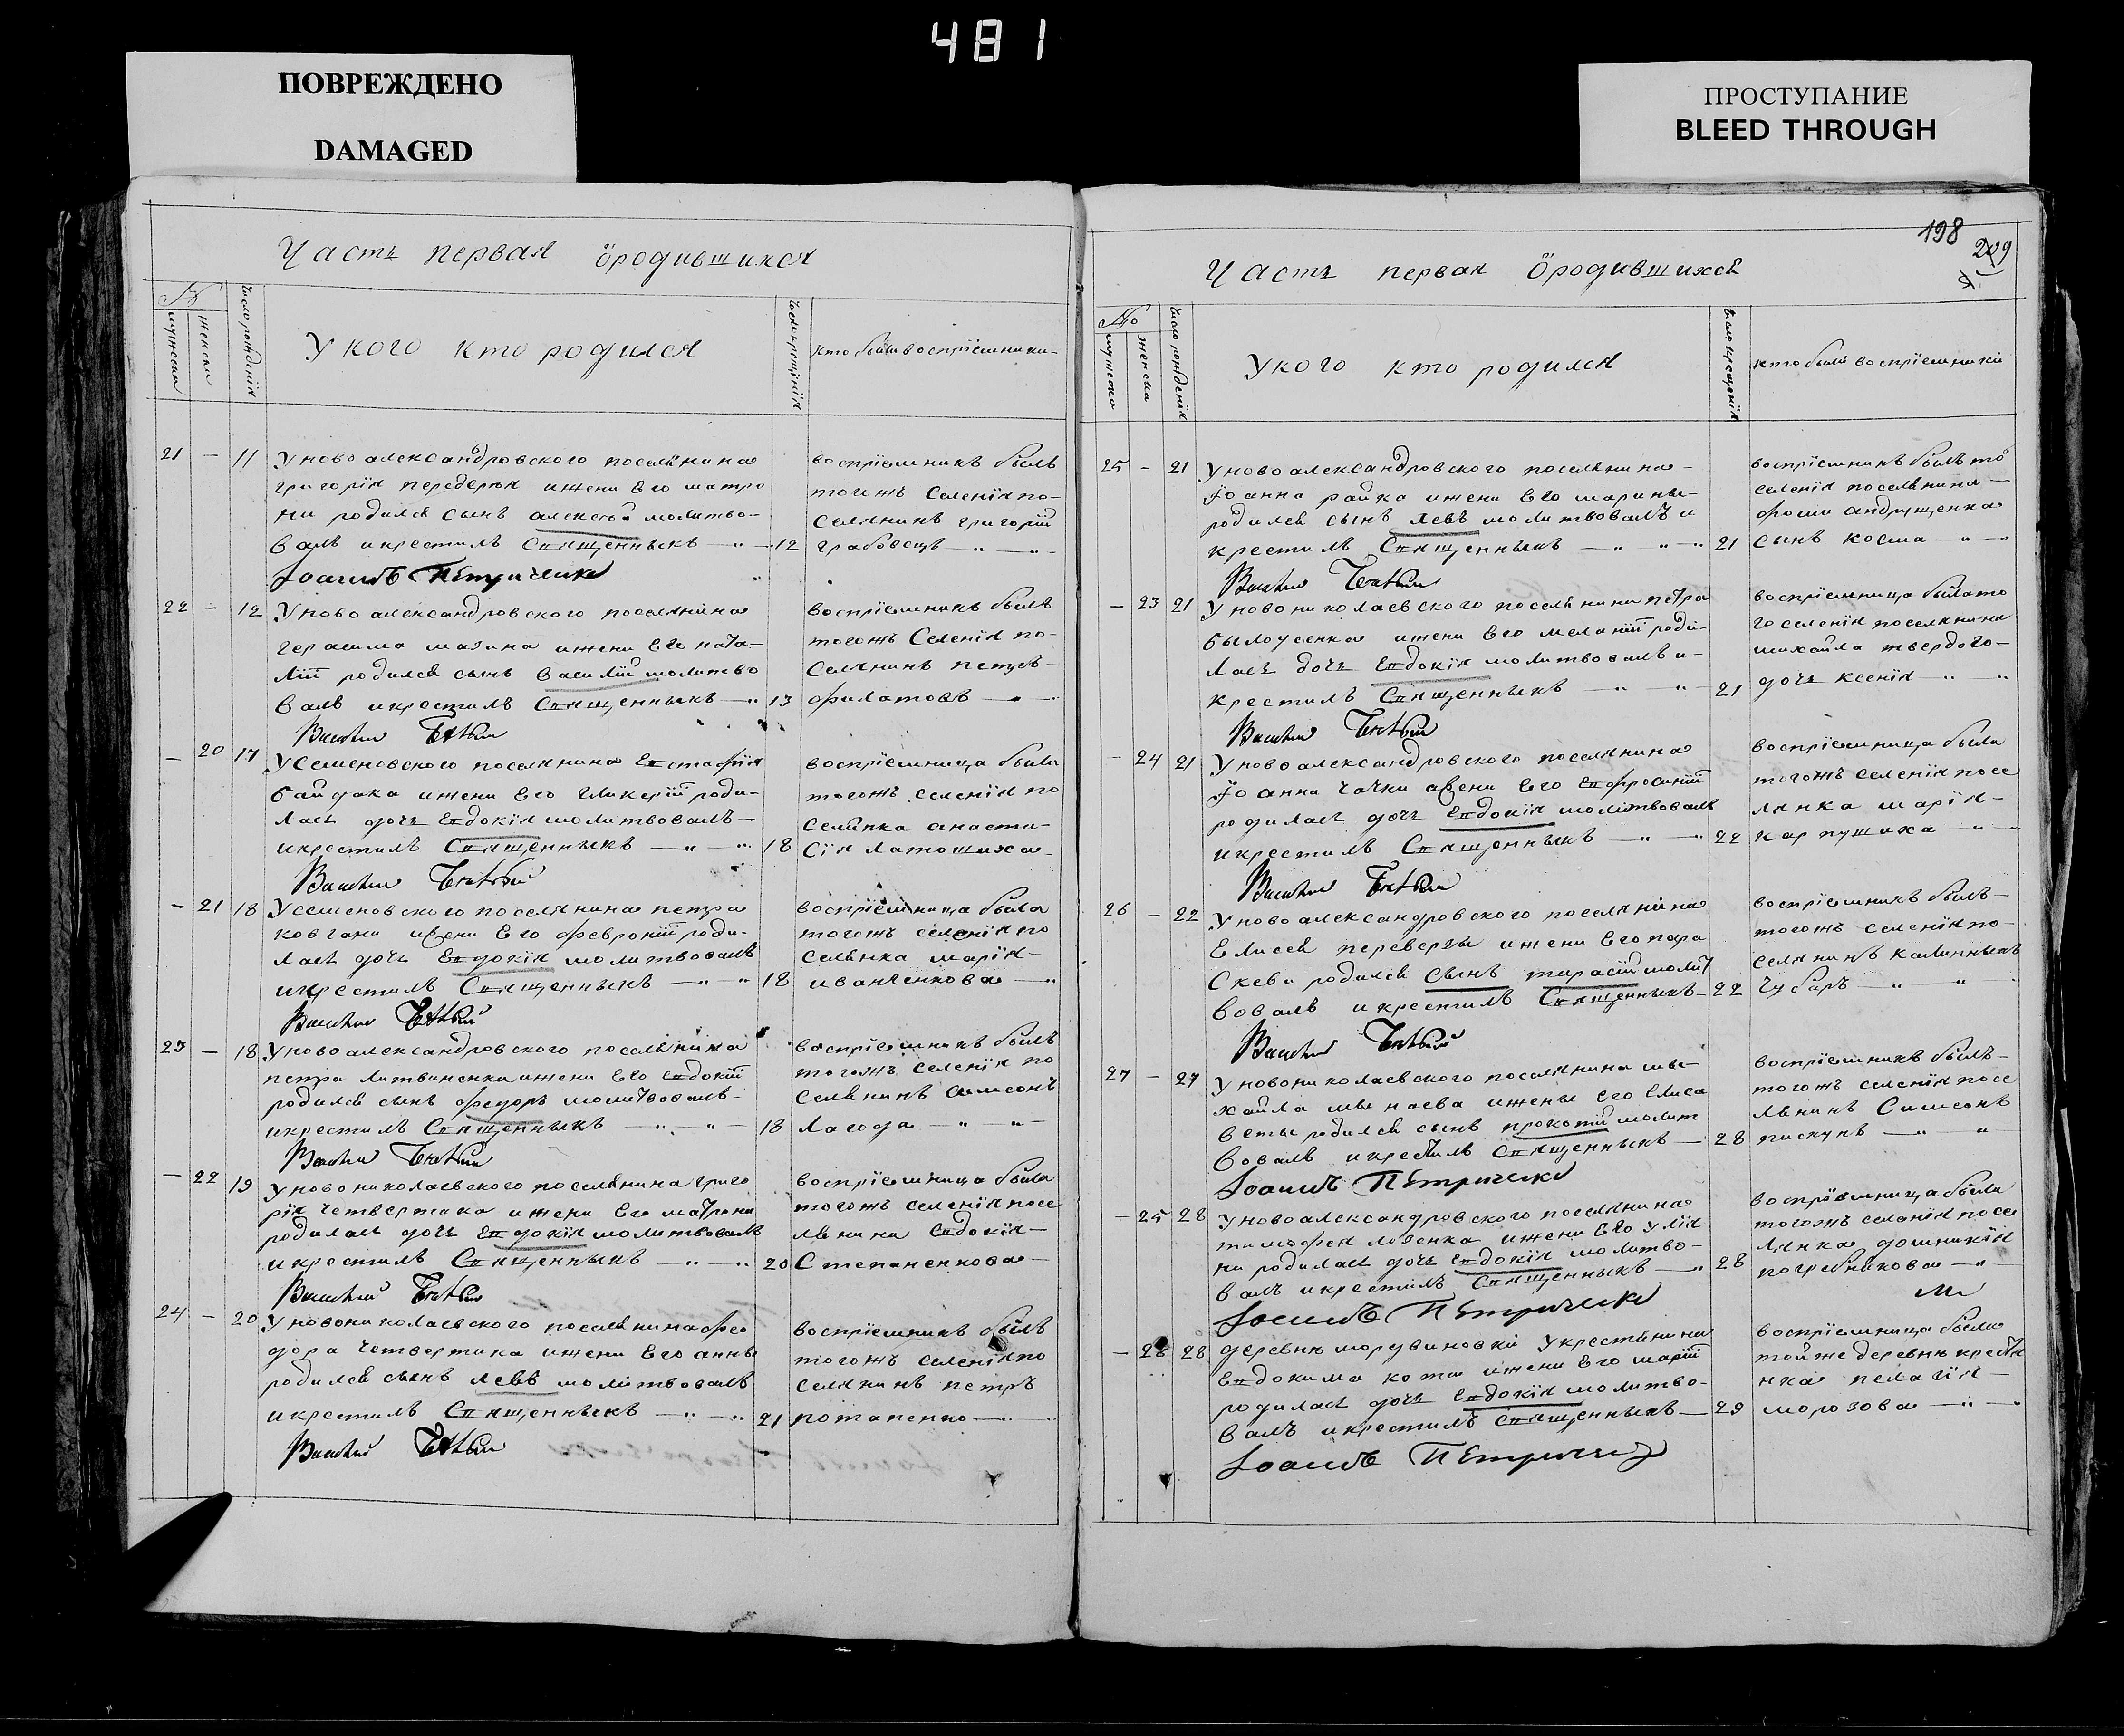 481
ПОВРЕЖДЕНО
DAMAGED
ПРОСТУПАНИЕ
BLEED THROUGH
Часть первая ӧродившихся
№
мужеска
женска
Число рождения
У кого кто родился
Число крещения
кто были восприемники
21 — 11 У новоалександровского поселянина
григория передерия и жени Его матро
ни родился сынъ алексей молитво-
валъ и крестилъ Священникъ 12
Иоаннъ Петриченко
восприемникъ былъ
тогожъ Селения по-
селянинъ григорий
грабовецъ
22 — 12 У новоалександровского поселянина
герасима мазина и жени Его ната-
лии родился сынъ василий молитво
валъ и крестилъ Священникъ 13
Василий
восприемникъ былъ
тогожъ Селения по-
Селянинъ петръ
филатовъ
— 20 17 У Семеновского поселянина Евстафия
байдака и жени Его гликерии роди-
лась дочь Евдокия молитвовалъ
и крестилъ Священникъ 18
Василий
восприемница была
тогожъ селения по
Селянка анаста-
сия латошиха
— 21 18 У семеновского поселянина петра
ковгани и жени Его февронии роди-
лась дочь Евдокия молитвовалъ
и крестилъ Священникъ 18
Василий
восприемница была
тогожъ селения по
селянка мария
иванченкова
23 — 18 У новоалександровского поселянина
петра литвиненка и жени Его Евдокии
родился сынъ федоръ молитвовалъ
и крестилъ Священникъ 18
Василий
восприемникъ былъ
тогожъ селения по
селянинъ симеонъ
лагода
— 22 19 У новониколаевского поселянина григо
рия четвертака и жени Его матрони
родилась дочь Евдокия молитвовалъ
и крестилъ Священникъ 20
Василий
восприемница была
тогожъ селения посе
лянина Евдокия
Степаненкова
24 — 20 У новониколаевского поселянина фео
дора четвертака и жени Его анны
родился сынъ левъ молитвовалъ
и крестилъ Священникъ 21
Василий
восприемникъ былъ
тогожъ селения по
селянинъ петръ
потапенко
198
209
Часть первая ӧродившихся
№
мужеска
женска
Число рождения
У кого кто родился
Число крещения
кто были восприемники
25 — 21 У новоалександровского поселянина
Иоанна райка и жени Его марины
родился сынъ левъ молитвовалъ и
крестилъ Священникъ 21
Василий
восприемникъ былъ то
селения поселянина
фоми андрущенка
сынъ косма
— 23 21 У новониколаевского поселянина петра
былоусенка и жени Его мелании роди-
лась дочь Евдокия молитвовалъ и
крестилъ Священникъ 21
Василий
восприемница была то
го селения поселянина
михаила твердого
дочь ксения
— 24 21 У новоалександровского поселянина
Иоанна чачки и жени Его Евфросинии
родилась дочь Евдокия молитвовалъ
и крестилъ Священникъ 22
Василий
восприемница была
тогожъ селения посе
лянка мария
карпушиха
26 — 22 У новоалександровского поселянина
Елисея перевертзы и жени Его пара
Скеви родился сынъ тарасий молит
вовалъ и крестилъ Священникъ 22
Василий
восприемникъ былъ
тогожъ селения по-
селянинъ калинникъ
чубаръ
27 — 27 У новониколаевского поселянина ми-
хаила минаева и жены Его Елиса
веты родился сынъ прокопий молит
вовалъ и крестилъ Священникъ 28
Иоаннъ Петриченко
восприемникъ былъ
тогожъ селения посе
лянинъ Симеонъ
пискунъ
— 25 28 У новоалександровского поселянина
тимофея лозенка и жени Его Улия
ни родилась дочь Евдокия молитво-
валъ и крестилъ Священникъ 28
Иоаннъ Петриченко
восприемница была
тогожъ селения посе
лянка домникия
погребнякова
— 26 28 деревни мордвиновки У крестянина
Евдокима кота и жени Его марии
родилась дочь Евдокия молитво-
валъ и крестилъ Священникъ 29
Иоаннъ Петриченко
восприемница была
той же деревни крестя
нка пелагия
морозова